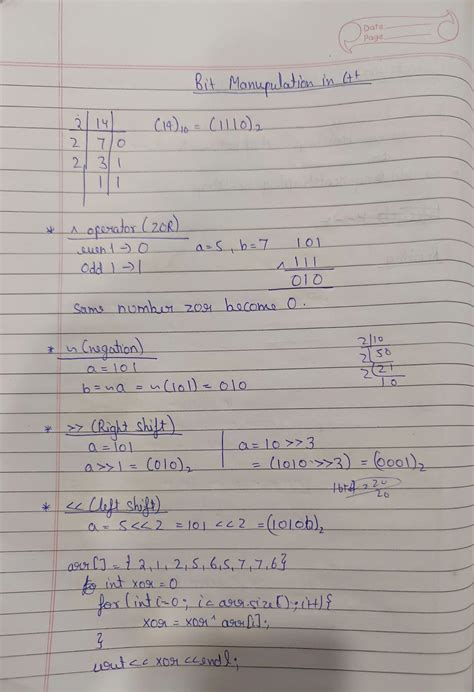 Date
Page
Bit Manupulation in C++
2 | 14 |
2 | 7 | 0
2 | 3 | 1
| 1 | 1
(14)10 = (1110)2
* ^ operator (XOR)
even 1 → 0
odd 1 → 1
a=5, b=7
101
^ 111
010
same number xor become 0.
* ~ (negation)
a = 101
b = ~a = ~(101) = 010
2|10
* >> (Right shift)
a = 101
a>>1 = (010)2
a = 10 >>3
= (1010 >>3) = (0001)2
* << (left shift)
a = 5<<2 = 101 <<2 = (10100)2
arr[] = { 2, 1, 2, 5, 6, 5, 7, 7, 6}
int xor = 0
for (int i=0; i< arr.size(); i++){
xor = xor ^ arr[i];
}
cout << xor << endl;